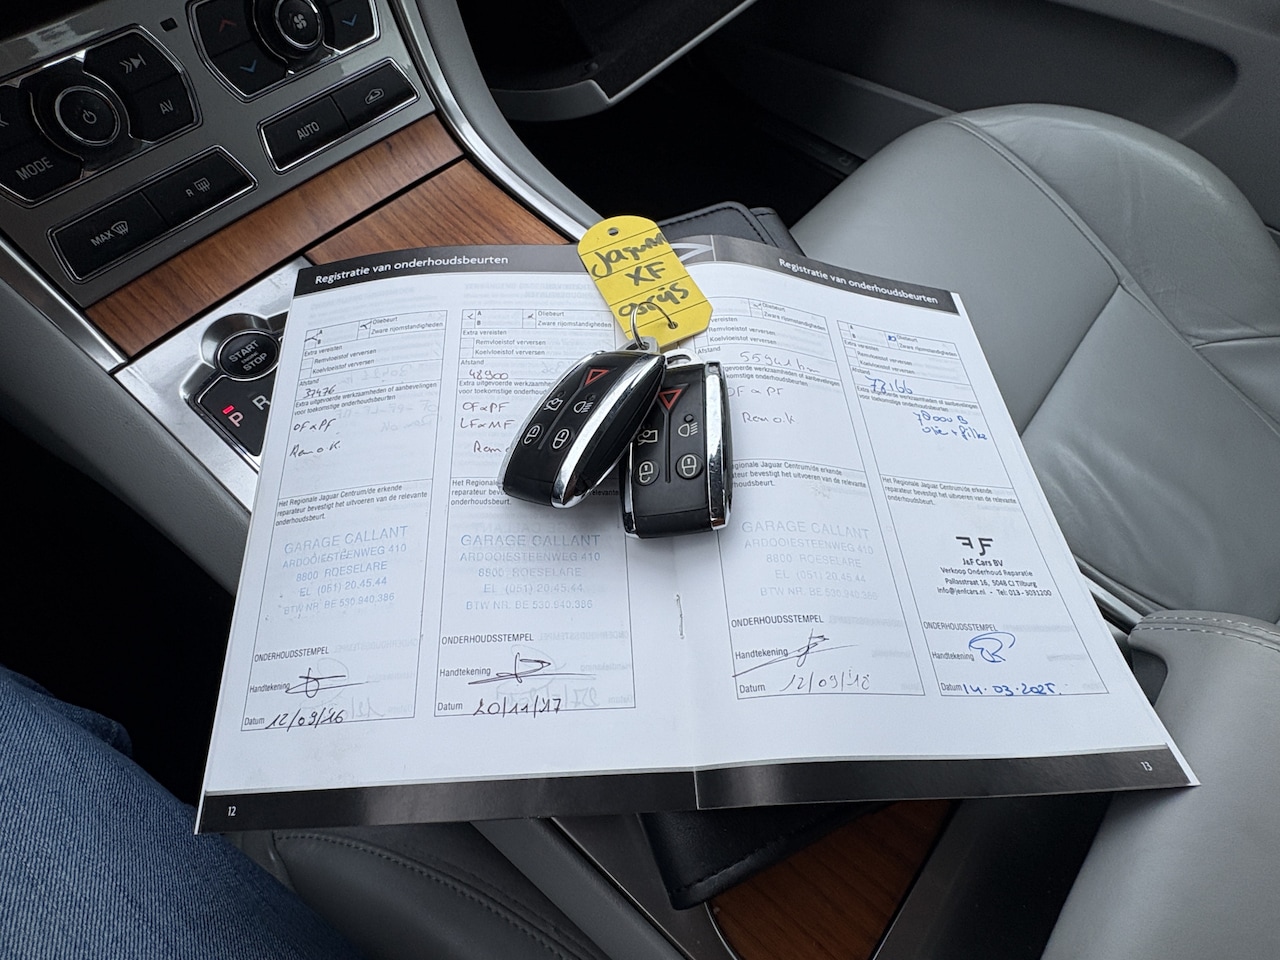 MODE
AV
AUTO
MAX
R
START
ENGINE
STOP
P
R
Jaguar
XF
Registratie van onderhoudsbeurten
A
B
Oliebeurt
Zware rijomstandigheden
Extra vereisten
Remvloeistof verversen
Koelvloeistof verversen
Afstand
37476
Extra uitgevoerde werkzaamheden of aanbevelingen
voor toekomstige onderhoudsbeurten
OF + PF
Rem o.k.
Het Regionale Jaguar Centrum/de erkende
reparateur bevestigt het uitvoeren van de relevante
onderhoudsbeurt.
GARAGE CALLANT
ARDOOIESTEENWEG 410
8800 ROESELARE
TEL (051) 20.45.44
BTW NR. BE 530.940.386
ONDERHOUDSSTEMPEL
Handtekening
Datum 12/09/16
12
A
B
Oliebeurt
Zware rijomstandigheden
Extra vereisten
Remvloeistof verversen
Koelvloeistof verversen
Afstand
48900
Extra uitgevoerde werkzaamheden
voor toekomstige onderhoudsbeurten
OF + PF
LF + MF
Rem
Het Regionale Jaguar
reparateur bevestigt het relevante
onderhoudsbeurt.
GARAGE CALLANT
ARDOOIESTEENWEG 410
8800 ROESELARE
TEL (051) 20.45.44
BTW NR. BE 530.940.386
ONDERHOUDSSTEMPEL
Handtekening
Datum 20/11/17
Registratie van onderhoudsbeurten
Oliebeurt
Zware rijomstandigheden
vereisten
Remvloeistof verversen
Koelvloeistof verversen
Afstand
uitgevoerde werkzaamheden of aanbevelingen
toekomstige onderhoudsbeurten
OF + PF
Rem o.k.
Regionale Jaguar Centrum/de erkende
reparateur bevestigt het uitvoeren van de relevante
onderhoudsbeurt.
GARAGE CALLANT
ARDOOIESTEENWEG 410
8800 ROESELARE
TEL (051) 20.45.44
BTW NR. BE 530.940.386
ONDERHOUDSSTEMPEL
Handtekening
Datum 12/09/18
A
B
Oliebeurt
Zware rijomstandigheden
Extra vereisten
Remvloeistof verversen
Koelvloeistof verversen
Afstand
73166
Extra uitgevoerde werkzaamheden of aanbevelingen
voor toekomstige onderhoudsbeurten
Het Regionale Jaguar Centrum/de erkende
reparateur bevestigt het uitvoeren van de relevante
onderhoudsbeurt.
JF
J&F Cars BV
Verkoop Onderhoud Reparatie
Pallasstraat 16, 5048 CJ Tilburg
info@jenfcars.nl - Tel: 013-3031200
ONDERHOUDSSTEMPEL
Handtekening
Datum 14.03.2025.
13